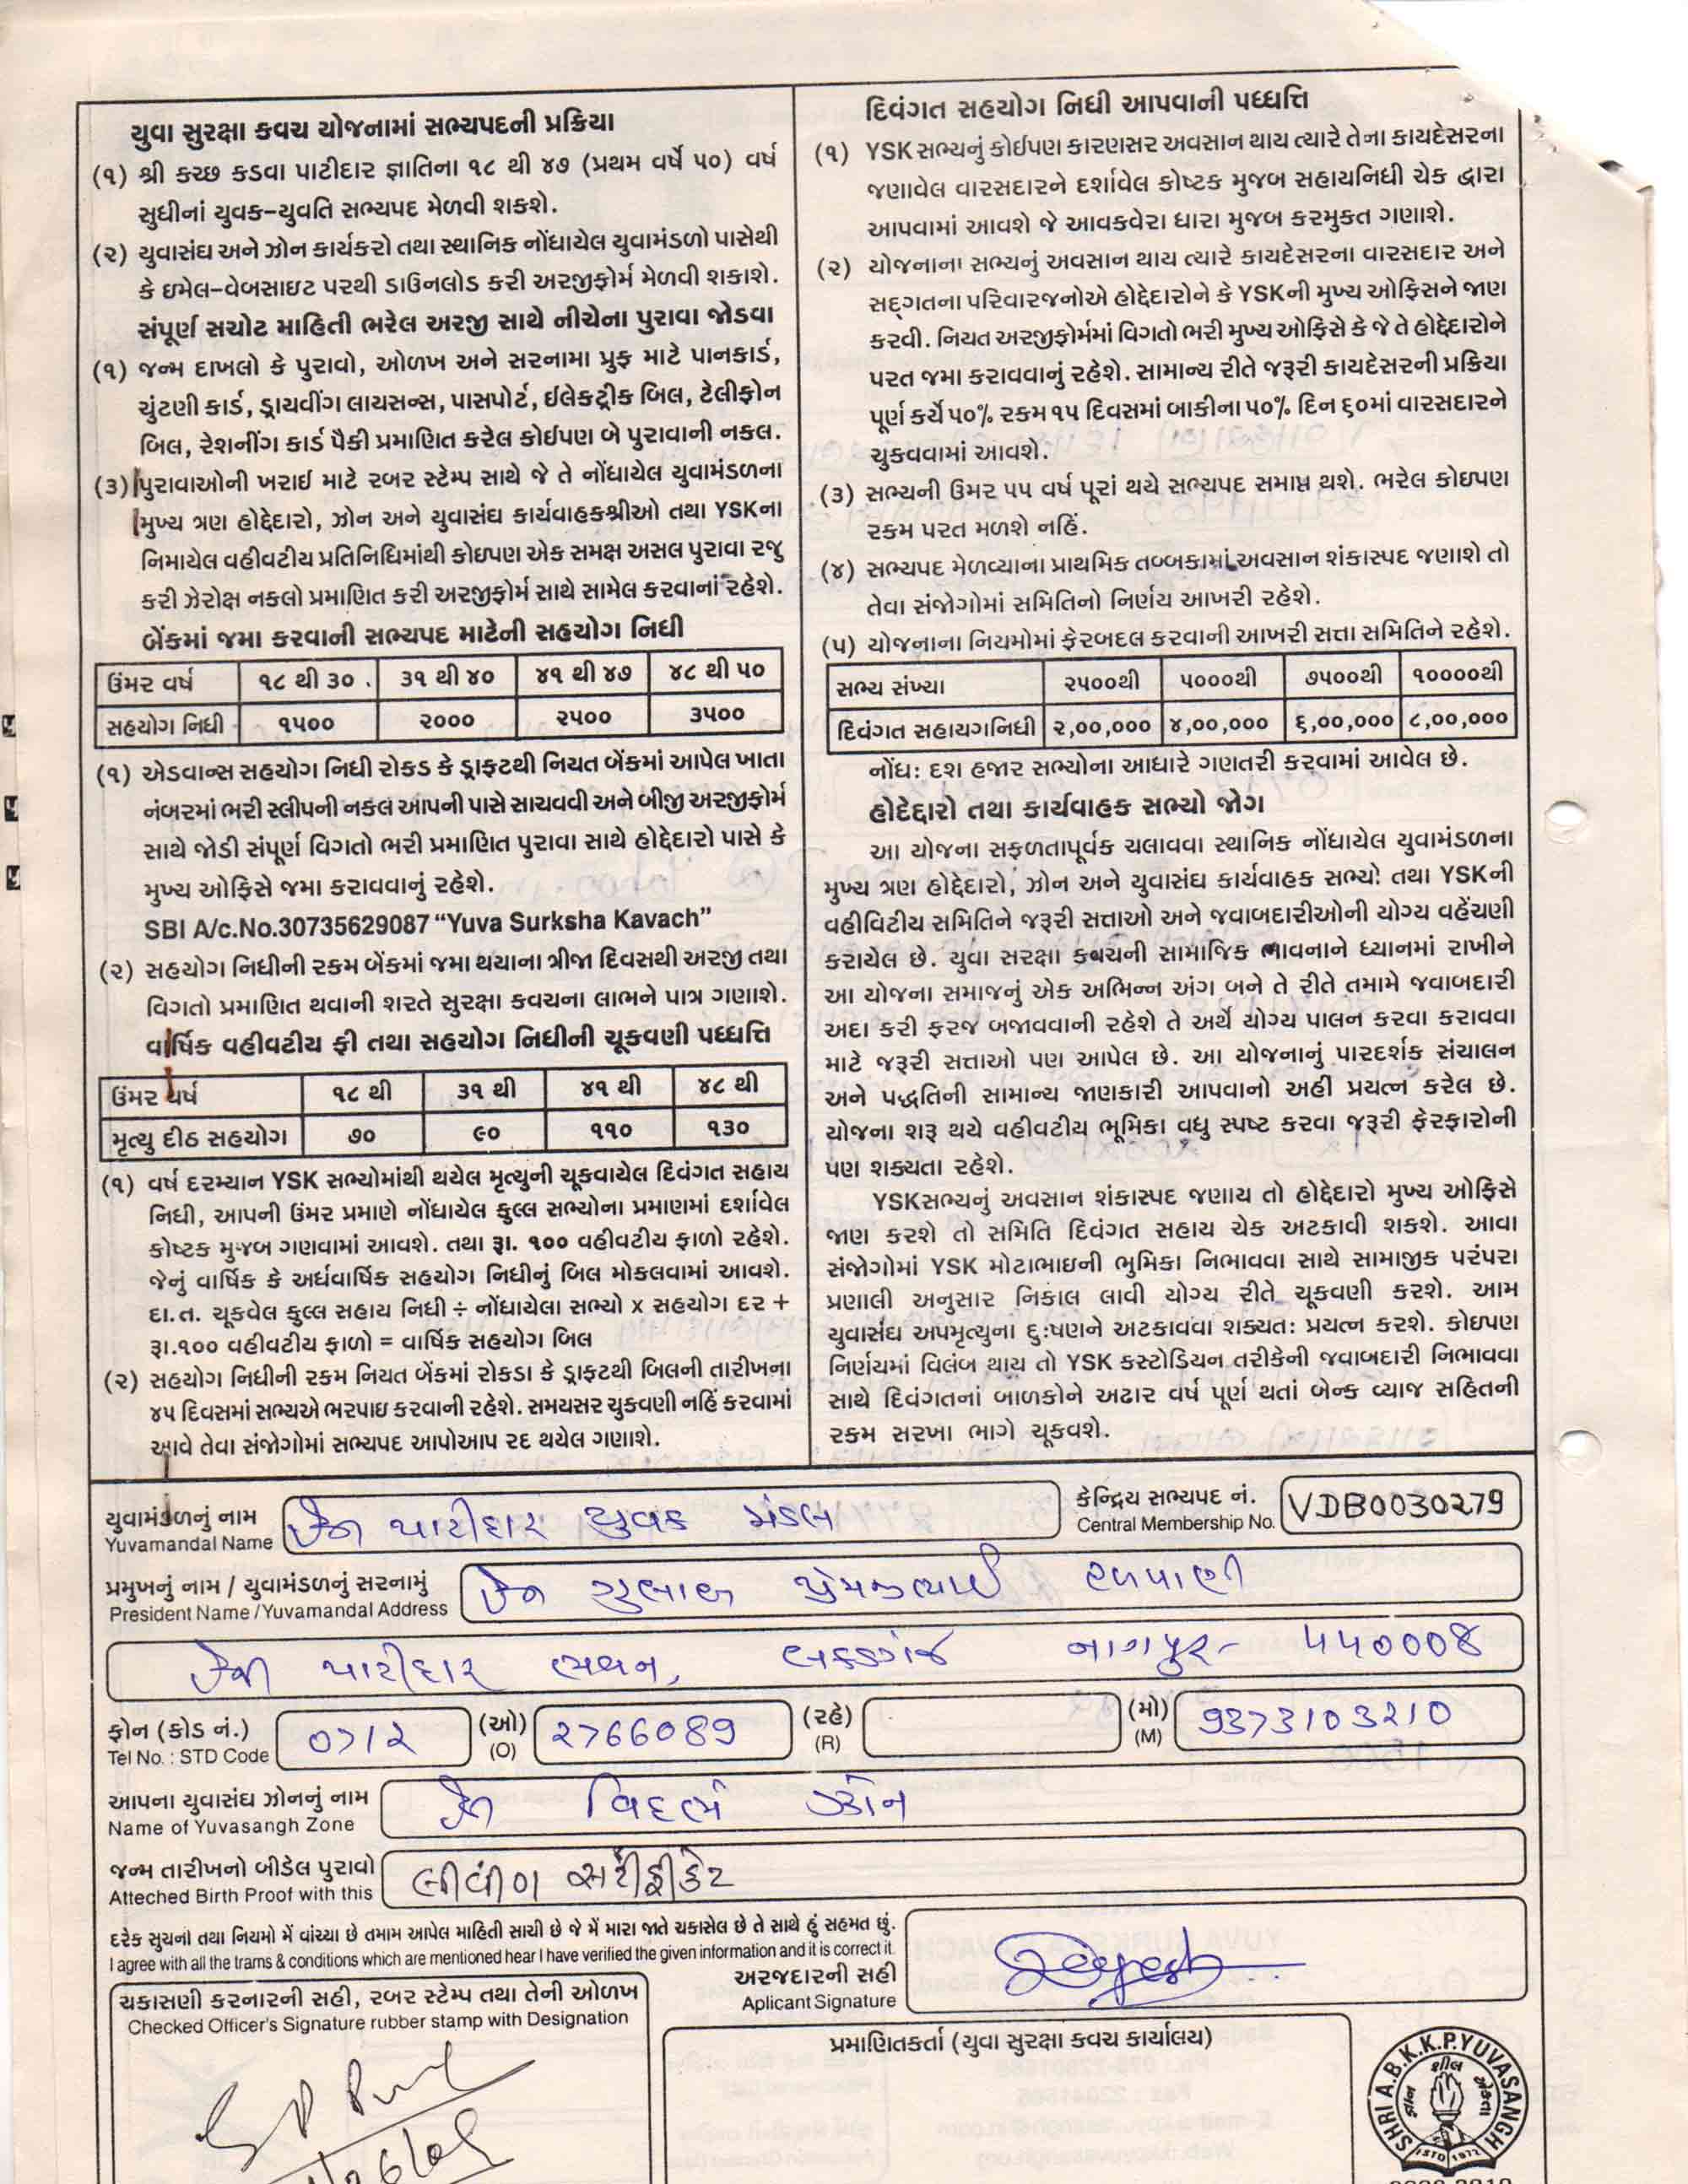 યુવા સુરક્ષા કવચ યોજનામાં સભ્યપદની પ્રક્રિયા
(૧) શ્રી કચ્છ કડવા પાટીદાર જ્ઞાતિના ૧૮ થી ૪૭ (પ્રથમ વર્ષે ૫૦) વર્ષ
સુધીનાં યુવક–યુવતિ સભ્યપદ મેળવી શકશે.
(૨) યુવાસંઘ અને ઝોન કાર્યકરો તથા સ્થાનિક નોંધાયેલ યુવામંડળો પાસેથી
કે ઇમેલ–વેબસાઇટ પરથી ડાઉનલોડ કરી અરજીફોર્મ મેળવી શકાશે.
સંપૂર્ણ સચોટ માહિતી ભરેલ અરજી સાથે નીચેના પુરાવા જોડવા
(૧) જન્મ દાખલો કે પુરાવો, ઓળખ અને સરનામા પ્રુફ માટે પાનકાર્ડ,
ચુંટણી કાર્ડ, ડ્રાયવીંગ લાયસન્સ, પાસપોર્ટ, ઈલેકટ્રીક બિલ, ટેલીફોન
બિલ, રેશનીંગ કાર્ડ પૈકી પ્રમાણિત કરેલ કોઈપણ બે પુરાવાની નકલ.
(૩) પુરાવાઓની ખરાઇ માટે રબર સ્ટેમ્પ સાથે જે તે નોંધાયેલ યુવામંડળના
મુખ્ય ત્રણ હોદ્દેદારો, ઝોન અને યુવાસંઘ કાર્યવાહકશ્રીઓ તથા YSKના
નિમાયેલ વહીવટીય પ્રતિનિધિમાંથી કોઇપણ એક સમક્ષ અસલ પુરાવા રજુ
કરી ઝેરોક્ષ નકલો પ્રમાણિત કરી અરજીફોર્મ સાથે સામેલ કરવાનાં રહેશે.
બેંકમાં જમા કરવાની સભ્યપદ માટેની સહયોગ નિધી
ઉંમર વર્ષ ૧૮ થી ૩૦ ૩૧ થી ૪૦ ૪૧ થી ૪૭ ૪૮ થી ૫૦
સહયોગ નિધી ૧૫૦૦ ૨૦૦૦ ૨૫૦૦ ૩૫૦૦
(૧) એડવાન્સ સહયોગ નિધી રોકડ કે ડ્રાફટથી નિયત બેંકમાં આપેલ ખાતા
નંબરમાં ભરી સ્લીપની નકલ આપની પાસે સાચવવી અને બીજી અરજીફોર્મ
સાથે જોડી સંપૂર્ણ વિગતો ભરી પ્રમાણિત પુરાવા સાથે હોદ્દેદારો પાસે કે
મુખ્ય ઓફિસે જમા કરાવવાનું રહેશે.
SBI A/c.No.30735629087 “Yuva Surksha Kavach”
(૨) સહયોગ નિધીની રકમ બેંકમાં જમા થયાના ત્રીજા દિવસથી અરજી તથા
વિગતો પ્રમાણિત થવાની શરતે સુરક્ષા કવચના લાભને પાત્ર ગણાશે.
વાર્ષિક વહીવટીય ફી તથા સહયોગ નિધીની ચૂકવણી પધ્ધતિ
ઉંમર વર્ષ ૧૮ થી ૩૧ થી ૪૧ થી ૪૮ થી
મૃત્યુ દીઠ સહયોગ ૭૦ ૯૦ ૧૧૦ ૧૩૦
(૧) વર્ષ દરમ્યાન YSK સભ્યોમાંથી થયેલ મૃત્યુની ચૂકવાયેલ દિવંગત સહાય
નિધી, આપની ઉંમર પ્રમાણે નોંધાયેલ કુલ્લ સભ્યોના પ્રમાણમાં દર્શાવેલ
કોષ્ટક મુજબ ગણવામાં આવશે. તથા રૂા. ૧૦૦ વહીવટીય ફાળો રહેશે.
જેનું વાર્ષિક કે અર્ધવાર્ષિક સહયોગ નિધીનું બિલ મોકલવામાં આવશે.
દા.ત. ચૂકવેલ કુલ્લ સહાય નિધી ÷ નોંધાયેલા સભ્યો x સહયોગ દર +
રૂા.૧૦૦ વહીવટીય ફાળો = વાર્ષિક સહયોગ બિલ
(૨) સહયોગ નિધીની રકમ નિયત બેંકમાં રોકડા કે ડ્રાફટથી બિલની તારીખના
૪૫ દિવસમાં સભ્યએ ભરપાઇ કરવાની રહેશે. સમયસર ચુકવણી નહિં કરવામાં
આવે તેવા સંજોગોમાં સભ્યપદ આપોઆપ રદ થયેલ ગણાશે.
દિવંગત સહયોગ નિધી આપવાની પધ્ધતિ
(૧) YSK સભ્યનું કોઈપણ કારણસર અવસાન થાય ત્યારે તેના કાયદેસરના
જણાવેલ વારસદારને દર્શાવેલ કોષ્ટક મુજબ સહાયનિધી ચેક દ્વારા
આપવામાં આવશે જે આવકવેરા ધારા મુજબ કરમુકત ગણાશે.
(૨) યોજનાના સભ્યનું અવસાન થાય ત્યારે કાયદેસરના વારસદાર અને
સદ્ગતના પરિવારજનોએ હોદ્દેદારોને કે YSKની મુખ્ય ઓફિસને જાણ
કરવી. નિયત અરજીફોર્મમાં વિગતો ભરી મુખ્ય ઓફિસે કે જે તે હોદ્દેદારોને
પરત જમા કરાવવાનું રહેશે. સામાન્ય રીતે જરૂરી કાયદેસરની પ્રક્રિયા
પૂર્ણ કર્યે ૫૦% રકમ ૧૫ દિવસમાં બાકીના ૫૦% દિન ૬૦માં વારસદારને
ચુકવવામાં આવશે.
(૩) સભ્યની ઉમર ૫૫ વર્ષ પૂરાં થયે સભ્યપદ સમાપ્ત થશે. ભરેલ કોઇપણ
રકમ પરત મળશે નહિં.
(૪) સભ્યપદ મેળવ્યાના પ્રાથમિક તબ્બકામાં અવસાન શંકાસ્પદ જણાશે તો
તેવા સંજોગોમાં સમિતિનો નિર્ણય આખરી રહેશે.
(૫) યોજનાના નિયમોમાં ફેરબદલ કરવાની આખરી સત્તા સમિતિને રહેશે.
સભ્ય સંખ્યા ૨૫૦૦થી ૫૦૦૦થી ૭૫૦૦થી ૧૦૦૦૦થી
દિવંગત સહાયગનિધી ૨,૦૦,૦૦૦ ૪,૦૦,૦૦૦ ૬,૦૦,૦૦૦ ૮,૦૦,૦૦૦
નોંધ: દશ હજાર સભ્યોના આધારે ગણતરી કરવામાં આવેલ છે.
હોદેદ્દારો તથા કાર્યવાહક સભ્યો જોગ
આ યોજના સફળતાપૂર્વક ચલાવવા સ્થાનિક નોંધાયેલ યુવામંડળના
મુખ્ય ત્રણ હોદ્દેદારો, ઝોન અને યુવાસંઘ કાર્યવાહક સભ્યો તથા YSKની
વહીવિટીય સમિતિને જરૂરી સત્તાઓ અને જવાબદારીઓની યોગ્ય વહેંચણી
કરાયેલ છે. યુવા સરક્ષા કવચની સામાજિક ભાવનાને ધ્યાનમાં રાખીને
આ યોજના સમાજનું એક અભિન્ન અંગ બને તે રીતે તમામે જવાબદારી
અદા કરી ફરજ બજાવવાની રહેશે તે અર્થે યોગ્ય પાલન કરવા કરાવવા
માટે જરૂરી સત્તાઓ પણ આપેલ છે. આ યોજનાનું પારદર્શક સંચાલન
અને પદ્ધતિની સામાન્ય જાણકારી આપવાનો અહીં પ્રયત્ન કરેલ છે.
યોજના શરૂ થયે વહીવટીય ભૂમિકા વધુ સ્પષ્ટ કરવા જરૂરી ફેરફારોની
પણ શક્યતા રહેશે.
YSKસભ્યનું અવસાન શંકાસ્પદ જણાય તો હોદ્દેદારો મુખ્ય ઓફિસે
જાણ કરશે તો સમિતિ દિવંગત સહાય ચેક અટકાવી શકશે. આવા
સંજોગોમાં YSK મોટાભાઇની ભુમિકા નિભાવવા સાથે સામાજીક પરંપરા
પ્રણાલી અનુસાર નિકાલ લાવી યોગ્ય રીતે ચૂકવણી કરશે. આમ
યુવાસંઘ અપમૃત્યુના દુ:ષણને અટકાવવા શક્યત: પ્રયત્ન કરશે. કોઇપણ
નિર્ણયમાં વિલંબ થાય તો YSK કસ્ટોડિયન તરીકેની જવાબદારી નિભાવવા
સાથે દિવંગતનાં બાળકોને અઢાર વર્ષ પૂર્ણ થતાં બેન્ક વ્યાજ સહિતની
રકમ સરખા ભાગે ચૂકવશે.
યુવામંડળનું નામ પાટીદાર યુવક મંડલ કેન્દ્રિય સભ્યપદ નં. VDB0030279
Yuvamandal Name Central Membership No.
પ્રમુખનું નામ / યુવામંડળનું સરનામું
President Name / Yuvamandal Address
પાટીદાર ભવન, લકડગંજ નાગપુર- ૫૫0008
ફોન (કોડ નં.) 0712 (ઓ) 2766089 (રહે) (મો) 9373103210
Tel No. : STD Code (O) (R) (M)
આપના યુવાસંઘ ઝોનનું નામ વિદર્ભ ઝોન
Name of Yuvasangh Zone
જન્મ તારીખનો બીડેલ પુરાવો લીવીંગ સર્ટીફીકેટ
Atteched Birth Proof with this
દરેક સુચનો તથા નિયમો મેં વાંચ્યા છે તમામ આપેલ માહિતી સાચી છે જે મેં મારા જાતે ચકાસેલ છે તે સાથે હું સહમત છું.
I agree with all the trams & conditions which are mentioned hear I have verified the given information and it is correct it.
અરજદારની સહી
Aplicant Signature
ચકાસણી કરનારની સહી, રબર સ્ટેમ્પ તથા તેની ઓળખ
Checked Officer's Signature rubber stamp with Designation
પ્રમાણિતકર્તા (યુવા સુરક્ષા કવચ કાર્યાલય)
SHRI A.B.K.K.P.YUVASANGH
ESTD 1972